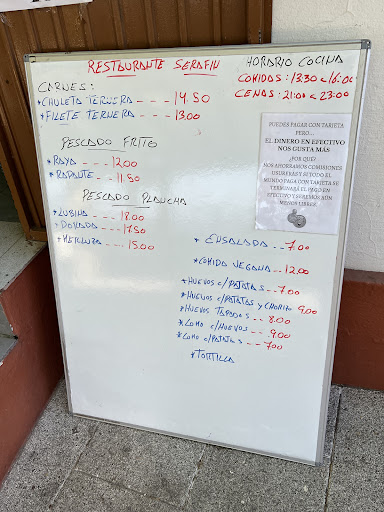 RESTAURANTE SERAFIN
HORARIO COCINA
COMIDAS: 13:30 a 16:00
CENAS: 21:00 a 23:00
CARNES:
*CHULETA TERNERA --- 14.50
*FILETE TERNERA --- 13.00
PUEDES PAGAR CON TARJETA
PERO...
EL DINERO EN EFECTIVO
NOS GUSTA MÁS
¿POR QUÉ?
NOS AHORRAMOS COMISIONES
USURERAS Y SI TODO EL
MUNDO PAGA CON TARJETA SE
TERMINARÁ EL DINERO EN
EFECTIVO Y SEREMOS AÚN
MENOS LIBRES.
PESCADO FRITO
*RAYA --- 12.00
*RAPANTE -- 11.50
PESCADO PLANCHA
*LUBINA --- 18.00
*DORADA --- 17.50
*MERLUZA --- 15.00
* ENSALADA -- 7.00
*COMIDA VEGANA -- 12.00
*HUEVOS c/PATATAS -- 7.00
*HUEVOS c/PATATAS y CHORIZO 9.00
*HUEVOS TAPADOS -- 8.00
*LOMO c/HUEVOS -- 9.00
*LOMO c/PATATAS -- 7.00
*TORTILLA